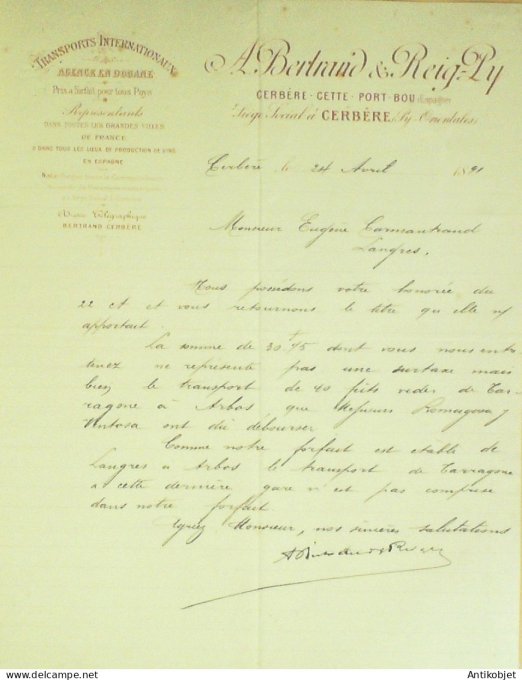 TRANSPORTS INTERNATIONAUX
AGENCE EN DOUANE
Prix à forfait pour tous Pays
Représentants
DANS TOUTES LES GRANDES VILLES
DE FRANCE
& DANS TOUS LES LIEUX DE PRODUCTION DE VINS
EN ESPAGNE
Adresse Télégraphique
BERTRAND-CERBÈRE
A. Bertrand & Reig-Py
CERBÈRE - CETTE - PORT-BOU (Espagne)
Siège Social à CERBÈRE (Py-Orientales)
Cerbère le 24 Avril 1891
Monsieur Eugène Carmantrand
Langres.
Nous possédons votre honorée du
22 ct et vous retournons le titre qu'elle ns
apportait
La somme de 30 f 75 dont vous nous entre
tenez ne représente pas une surtaxe mais
bien le transport de 40 fûts vides de Tar-
ragone à Arbos, que Messieurs Romagosa y
Ventosa ont dû débourser
Comme notre forfait est établi de
Langres à Arbos le transport de Tarragone
à cette dernière gare n'est pas comprise
dans notre forfait
Agréez Monsieur, nos sincères salutations
A Bertrand & Reig Py
Antikobjet